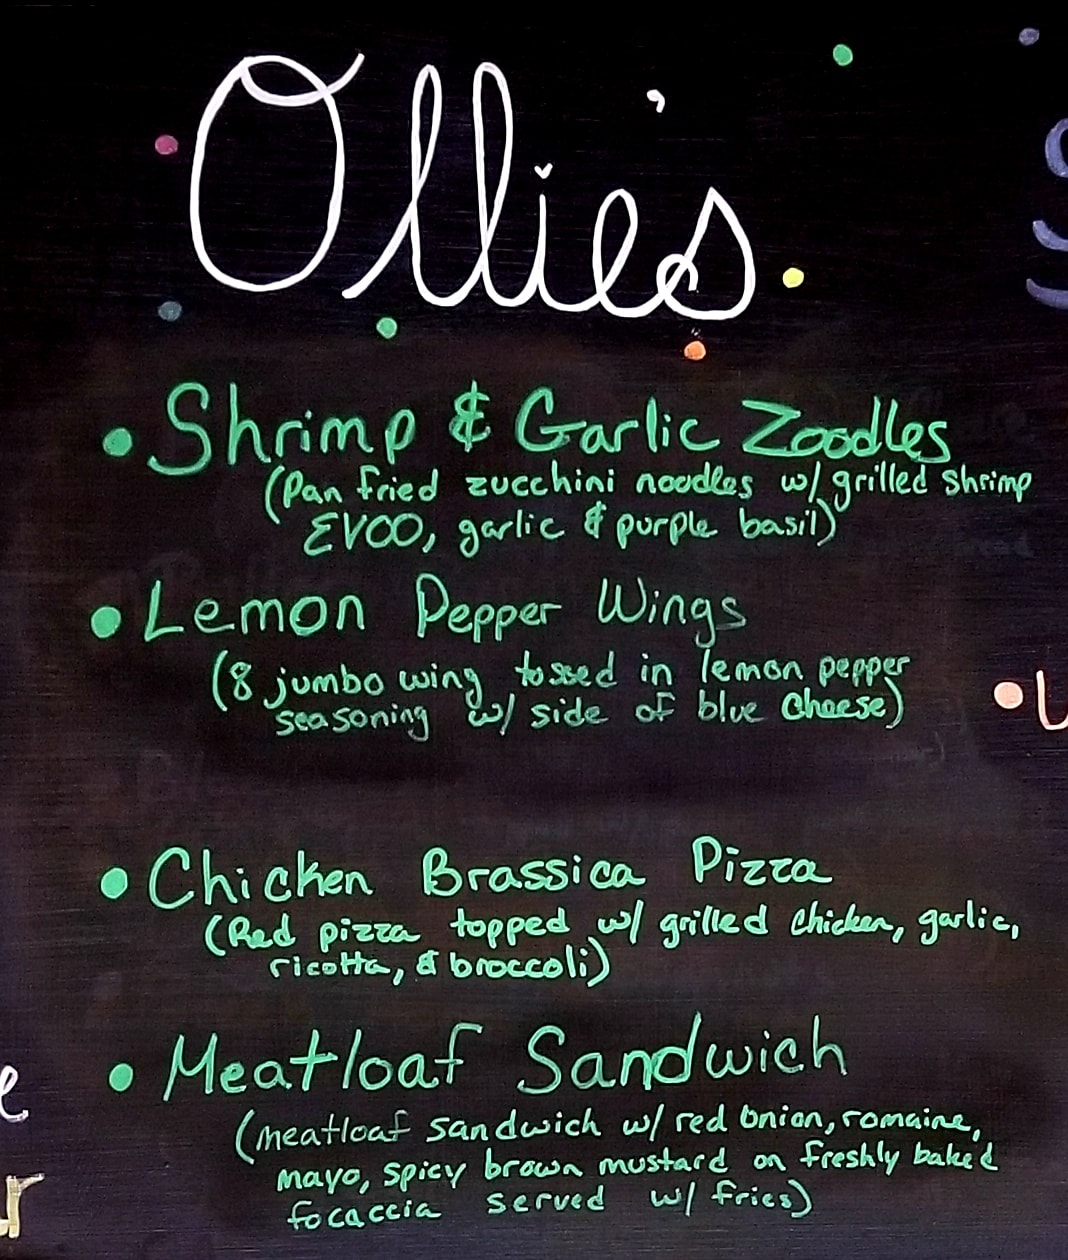 Ollie's
• Shrimp & Garlic Zoodles
(Pan fried zucchini noodles w/ grilled shrimp
EVOO, garlic & purple basil)
• Lemon Pepper Wings
(8 jumbo wing tossed in lemon pepper
seasoning w/ side of blue cheese)
• Chicken Brassica Pizza
(Red pizza topped w/ grilled chicken, garlic,
ricotta, & broccoli)
• Meatloaf Sandwich
(meatloaf sandwich w/ red onion, romaine,
mayo, spicy brown mustard on freshly baked
focaccia served w/ fries)